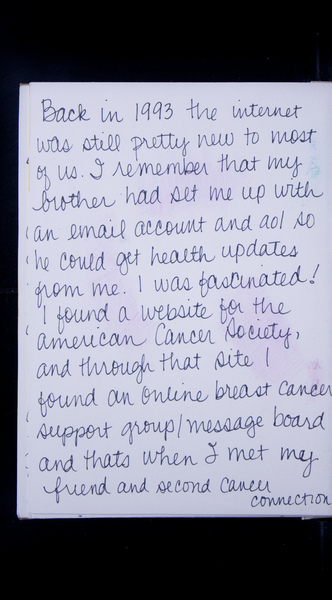 Back in 1993 the internet
was still pretty new to most
of us. I remember that my
brother had set me up with
an email account and aol so
he could get health updates
from me. I was fascinated!
I found a website for the
american Cancer Society,
and through that site I
found an online breast cancer
support group/message board
and thats when I met my
friend and second cancer
connection